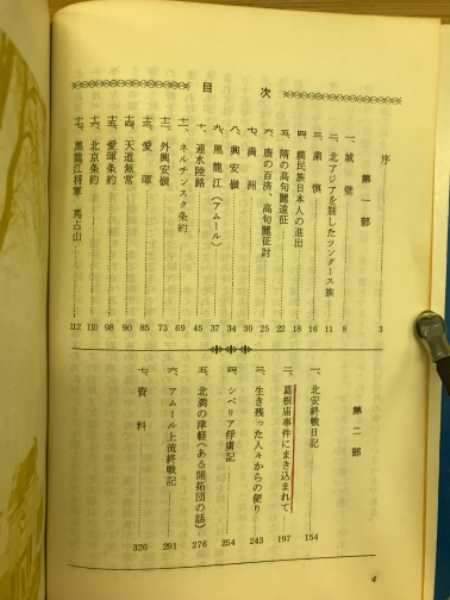 目次
序 3
第一部
一、城壁 8
二、北アジアを制したツングース族 11
三、粛慎 16
四、漢民族日本人の進出 18
五、隋の高句麗遠征 22
六、唐の百済、高句麗征討 25
七、満洲 30
八、興安嶺 34
九、黒龍江(アムール) 37
十、連水陸路 45
十一、ネルチンスク条約 69
十二、外興安嶺 73
十三、愛琿 85
十四、天道無常 90
十五、愛琿条約 98
十六、北京条約 110
十七、黒龍江将軍 馬占山 112
第二部
一、北安終戦日記 154
二、葛根廟事件にまき込まれて 197
三、生き残った人々からの便り 243
四、シベリア俘虜記 254
五、北満の津軽(ある開拓団の話) 276
六、アムール上流終戦記 291
七、資料 326
4